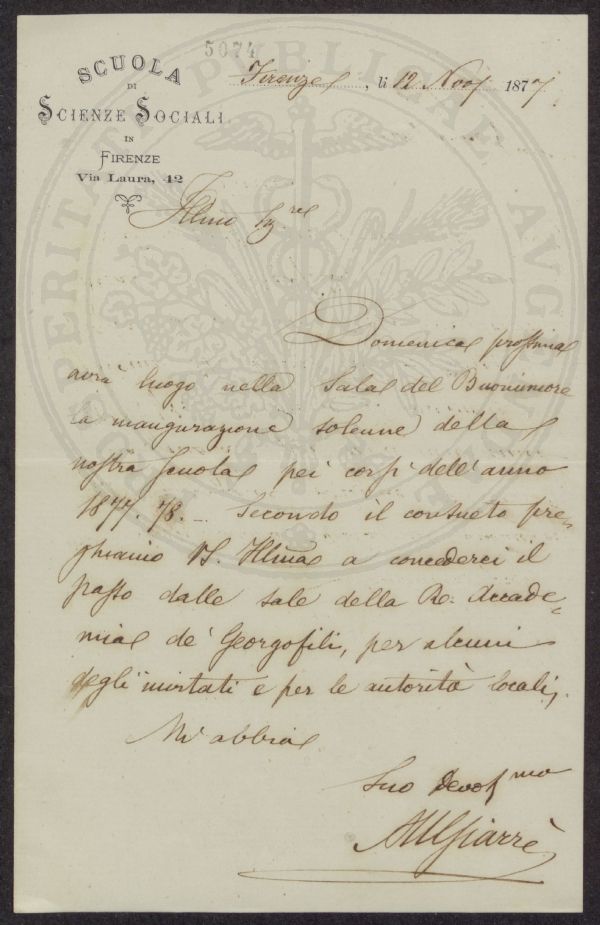 5074
SCUOLA
DI
SCIENZE SOCIALI
IN
FIRENZE
Via Laura, 42
Firenze, li 12 Nov 1877
Illmo Sig.re
Domenica prossima
avrà luogo nella Sala del Buonumore
la inaugurazione solenne della
nostra Scuola pei corsi dell'anno
1877.78. – Secondo il consueto pre-
ghiamo VS. Illma a concederci il
passo dalle sale della Re. Accade-
mia de' Georgofili, per alcuni
degli invitati e per le autorità locali,
Mi abbia
Suo Devot.mo
Giarrè
PROSPERITATI PUBLICAE AUG